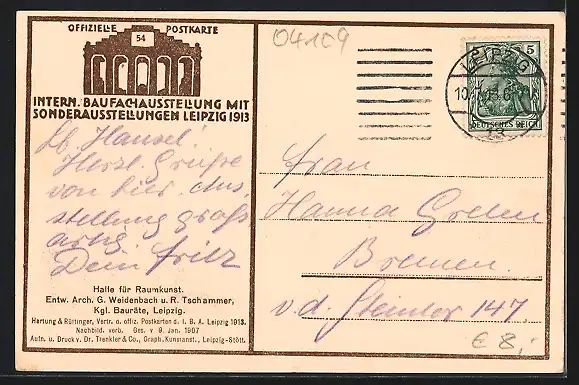 OFFIZIELLE POSTKARTE
54
INTERN. BAUFACHAUSSTELLUNG MIT
SONDERAUSSTELLUNGEN LEIPZIG 1913
Lb. Hansel!
Herzl. Grüße
von hier. Aus
stellung groß
artig
Dein Fritz
Halle für Raumkunst.
Entw. Arch. G. Weidenbach u. R. Tschammer,
Kgl. Bauräte, Leipzig.
Hartung & Rüttinger, Vertr. d. offiz. Postkarten d. I. B. A. Leipzig 1913.
Nachbild. verb. Ges. v 9. Jan. 1907
Autn. u. Druck v. Dr. Trenkler & Co., Graph. Kunstanst., Leipzig-Stött.
04109
LEIPZIG
13
5
DEUTSCHES REICH
Frau
Hanna Greden
Bremen.
v. d. Steintor 147.
€ 8,-